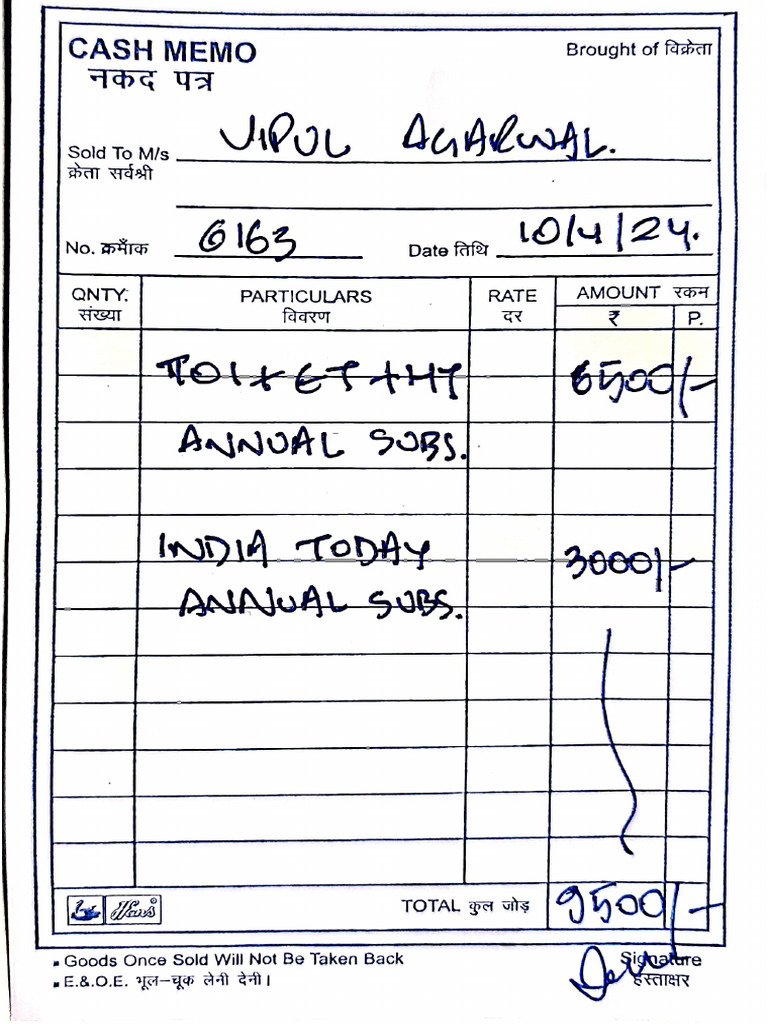 CASH MEMO
नकद पत्र
Brought of विक्रेता
Sold To M/s VIPUL AGARWAL.
क्रेता सर्वश्री
No. क्रमाँक 6163 Date तिथि 10/4/24.
QNTY. PARTICULARS RATE AMOUNT रकम
संख्या विवरण दर ₹ P.
TOI + ET + HT 6500/-
ANNUAL SUBS.
INDIA TODAY 3000/-
ANNUAL SUBS.
Hans TOTAL कुल जोड़ 9500/-
Goods Once Sold Will Not Be Taken Back Signature
E.&.O.E. भूल-चूक लेनी देनी। हस्ताक्षर